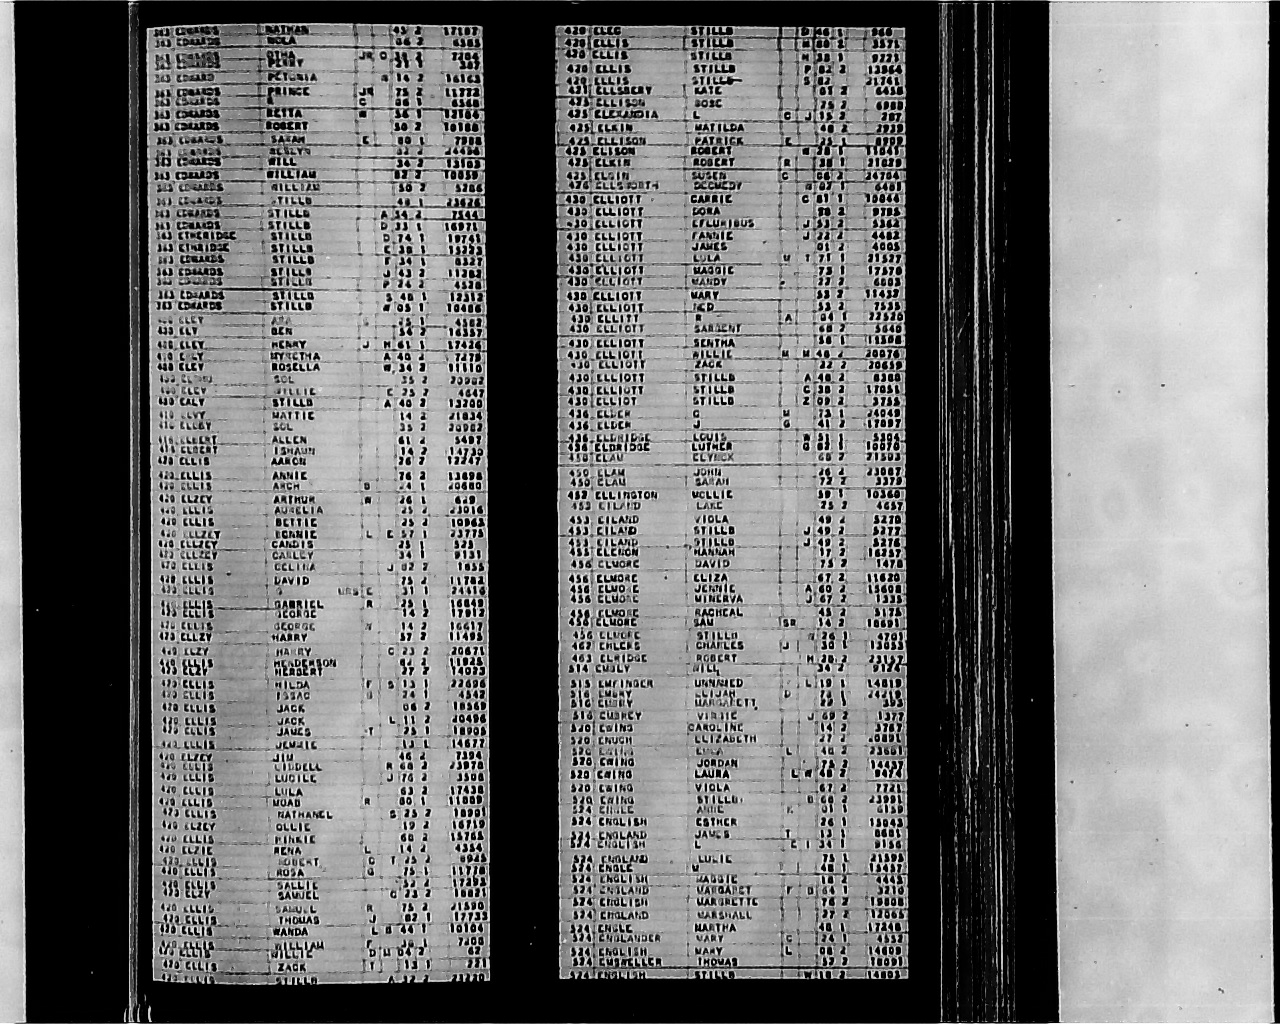 363 EDWARDS NATHAN 45 2 17187
363 EDWARDS NOLA 66 2 6385
363 EDWARDS OTHA JR O
363 PERRY 31 1 387
363 EDWARD PETUNIA 14 2 16163
363 EDWARDS PRINCE JR 75 2 11772
363 EDWARDS R C 06 1 6560
363 EDWARDS RETTA W 56 1 12164
363 EDWARDS ROBERT 50 2 10188
363 EDWARDS SARAH E 80 1 7988
363 EDWARDS
363 EDWARDS WILL 34 2 13163
363 EDWARDS WILLIAM 82 2 10059
363 EDWARDS WILLIAM 50 2 5286
363 EDWARDS STILLB 48 1 23626
363 EDWARDS STILLB A 54 2 7544
363 EDWARDS STILLB D 33 1 16971
363 ETHERIDGE STILLB D 74 1 19741
363 ETHRIDGE STILLB E 38 1 15223
363 EDWARDS STILLB F 57 1 8327
363 EDWARDS STILLB J 43 2 11282
363 EDWARDS STILLB P 24 2 4528
363 EDWARDS STILLB S 48 1 12312
363 EDWARDS STILLB W 05 1 10486
400 ELEY 25 1
400 ELY BEN 54 2 16357
400 ELEY HENRY J H 61 1 17426
400 ELEY MYRETHA A 40 2 7279
400 ELEY ROSELLA W 34 2 11110
SOL 35 2 20902
400 ELEY E 25 2 4647
400 EALY STILLB A 40 2 13200
410 ELVY MATTIE 14 2 21834
410 ELLBY SOL 35 2 20902
416 ELBERT ALLEN 61 2 5497
416 ELBERT ISHAUN 14 2 14730
420 ELLIS AARON 26 2 12247
420 ELLIS ANNIE 76 2 13698
420 ELLIS ARCH B 24 1 20680
420 ELZEY ARTHUR W 26 1 629
420 ELLIS AURELIA 25 2 23016
420 ELLIS BETTIE 25 2 10965
420 ELLZEY BONNIE L E 57 1 23775
420 ELLZEY CANDIS 25 1 525
420 ELLZEY CARLEY 34 1 9131
420 ELLIS CELINA J 02 2 1855
420 ELLIS DAVID 75 2 11782
420 ELLIS G MRS E 31 1 24416
420 ELLIS GABRIEL R 25 1 16649
420 ELLIS GEORGE 14 2 17912
420 ELLIS GEORGE W 14 2 16617
420 ELLZY HARRY 37 2 11495
420 ELZY HARRY C 23 2 20671
420 ELLIS HENDERSON 82 2 11825
420 ELZY HERBERT 27 2 14023
420 ELLIS HILDA F S 13 1 22606
420 ELLIS ISSAC B 24 1 4542
420 ELLIS JACK 06 2 18569
420 ELLIS JACK L 11 2 20496
420 ELLIS JAMES T 25 1 18905
420 ELLIS JEMMIE 13 1 14677
420 ELZEY JIM 46 2 7394
420 ELLIS LIDDELL R 68 2 23970
420 ELLIS LUCILE J 76 2 3508
420 ELLIS LULA 63 2 17438
420 ELLIS MOAB R 80 1 11809
420 ELLIS NATHANEL S 25 2 18901
420 ELZEY OLLIE 19 2 16719
420 ELLIS PINKIE 60 2 15765
420 ELZIE RENA L 14 2 4354
420 ELLIS ROBERT C T 25 2 8925
420 ELLIS ROSA G 75 1 11770
420 ELLIS SALLIE 52 2 17395
420 ELZY SAMUEL C 23 2 18821
420 ELLIS SAMUEL R 75 2 21590
420 ELLIS THOMAS J 82 1 17733
420 ELLIS WANDA L B 44 1 10104
420 ELLIS WILLIAM F 38 1 7408
420 ELLIS WILLIE D M 04 2 62
420 ELLIS ZACK T 13 1 221
420 ELLIS STILLB A 32 2 23230
420 ELEC STILLB D 46 1 960
420 ELLIS STILLB H 80 2 3571
420 ELLIS STILLB H 38 1 9221
420 ELLIS STILLB P 82 2 13964
420 ELLIS STILLB S 82 21741
421 ELLSBERY KATE 01 2 6438
425 ELLISON ROSE 75 2 6988
425 ELEXANDIA L C J 15 2 287
425 ELKIN MATILDA 48 2 2939
425 ELLISON PATRICK E 25 1 8909
425 ELISON ROBERT W 38 1 11641
425 ELKIN ROBERT R 38 1 21029
425 ELGIN SUSEN C 06 2 24764
426 ELLSWORTH W 07 1 6488
430 ELLIOTT CARRIE C 81 1 10044
430 ELLIOTT DORA 98 2 9785
430 ELLIOTT EFLURIBUS J 53 2 5362
430 ELLIOTT FANNIE J 22 2 4482
430 ELLIOTT JAMES 01 2 4005
430 ELLIOTT LULA M T 71 1 21527
430 ELLIOTT MAGGIE 73 1 17570
430 ELLIOTT MANDY 22 2 6803
430 ELLIOTT MARY 53 2 11437
430 ELLIOTT NED 53 2 7535
430 ELLITT R A 04 1 22520
430 ELLIOTT SARGENT 60 2 5640
430 ELLIOTT SENTHA 38 1 11508
430 ELLIOTT WILLIE M M 46 2 20076
430 ELLIOTT ZACK 22 2 20659
430 ELLIOTT STILLB A 48 2 8380
430 ELLIOTT STILLB C 38 2 17051
430 ELLIOT STILLB Z 09 2 3755
436 ELDER G M 73 1 24049
436 ELDER J G 41 2 17097
436 ELDRIDGE LOUIS W 51 1 5304
436 ELDRIDGE LUTHER G 82 1 10070
450 ELAM 60 2 21503
450 ELAM JOHN 26 2 23087
450 ELAM SARAH 72 2 3379
452 ELLINGTON MOLLIE 59 1 10360
453 EILAND LAKE 25 2 4657
453 EILAND VIOLA 49 2 5270
453 EILAND STILLB J 49 2 5277
453 EILAND STILLB J 49 2 5276
455 ELENON HANNAH 17 2 16257
456 ELMORE DAVID 75 2 1478
456 ELMORE ELIZA 67 2 11620
456 ELMORE JENNIE A 60 2 15608
456 ELMORE MINERVA J 67 2 1335
456 ELMORE RACHEAL 45 2 5175
456 ELMORE SAM SR 14 2 18691
456 ELMORE STILLB 26 1 4701
462 EHLERS CHARLES J 30 1 13053
463 ELRIDGE ROBERT H 28 2 23157
514 EMBLY WILL 34 2 9174
515 EMFINGER UNNAMED L 19 1 14819
516 EMBRY ELIJAH D 75 1 24219
516 EMBRY MARGARETT 22 1 393
516 EMBREY VIRGIE J 69 2 1377
520 EWING CAROLINE 14 2 3767
520 ENOCH ELIZABETH 27 2 20891
520 EWING EMMA L 40 2 23601
520 EWING JORDAN 75 2 14437
520 EWING LAURA L W 48 2 9474
520 EWING VIOLA 67 2 7721
520 EWING STILLB B 66 2 23991
524 ENGLE ANNE K 01 1 6159
524 ENGLISH ESTHER 26 1 15043
524 ENGLAND JAMES T 13 1 8681
524 ENGLISH L E I 34 1 9156
524 ENGLAND LULIE 75 1 21595
524 ENGLE M 48 1 15457
524 ENGLISH MAGGIE 18 2 4445
524 ENGLAND MARGARET F B 64 1 3210
524 ENGLISH MARGRETTE 76 2 19808
524 ENGLAND MARSHALL 27 2 12065
524 ENGLE MARTHA 48 1 17248
524 ENGLANDER MARY C 24 1 4552
524 ENGLISH MARY L 08 2 14608
524 EMSWELLER THOMAS 57 2 18091
524 ENGLISH STILLB W 18 2 14805